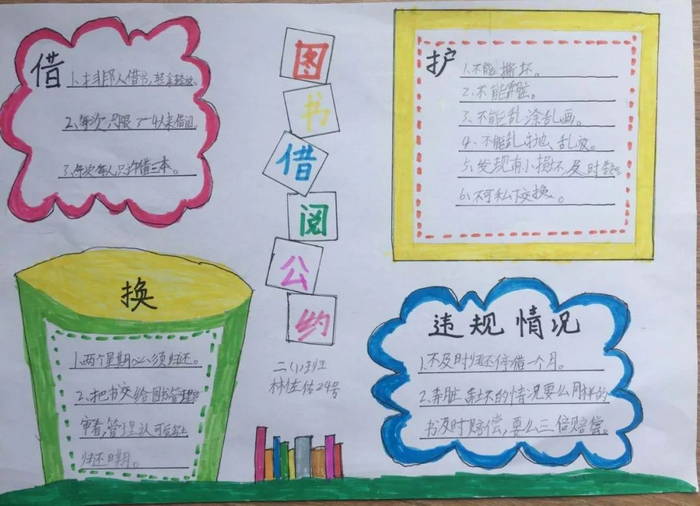 借
2、每次只限
3、每次每人只许借三本。
图
书
借
阅
公
约
护
1、不能撕坏。
2、不能弄脏。
3、不能乱涂乱画。
4、不能乱
5、发现有小损坏及时
6、不可私下交换。
换
1、两个星期必须归还。
2、把书交给图书管理员
审看,管理
归还日期。
二(1)班
林佳佑29号
违规情况
1、不及时归还停借一个月。
2、弄脏弄坏的情况要么用样的
书及时赔偿,要么三倍赔偿。